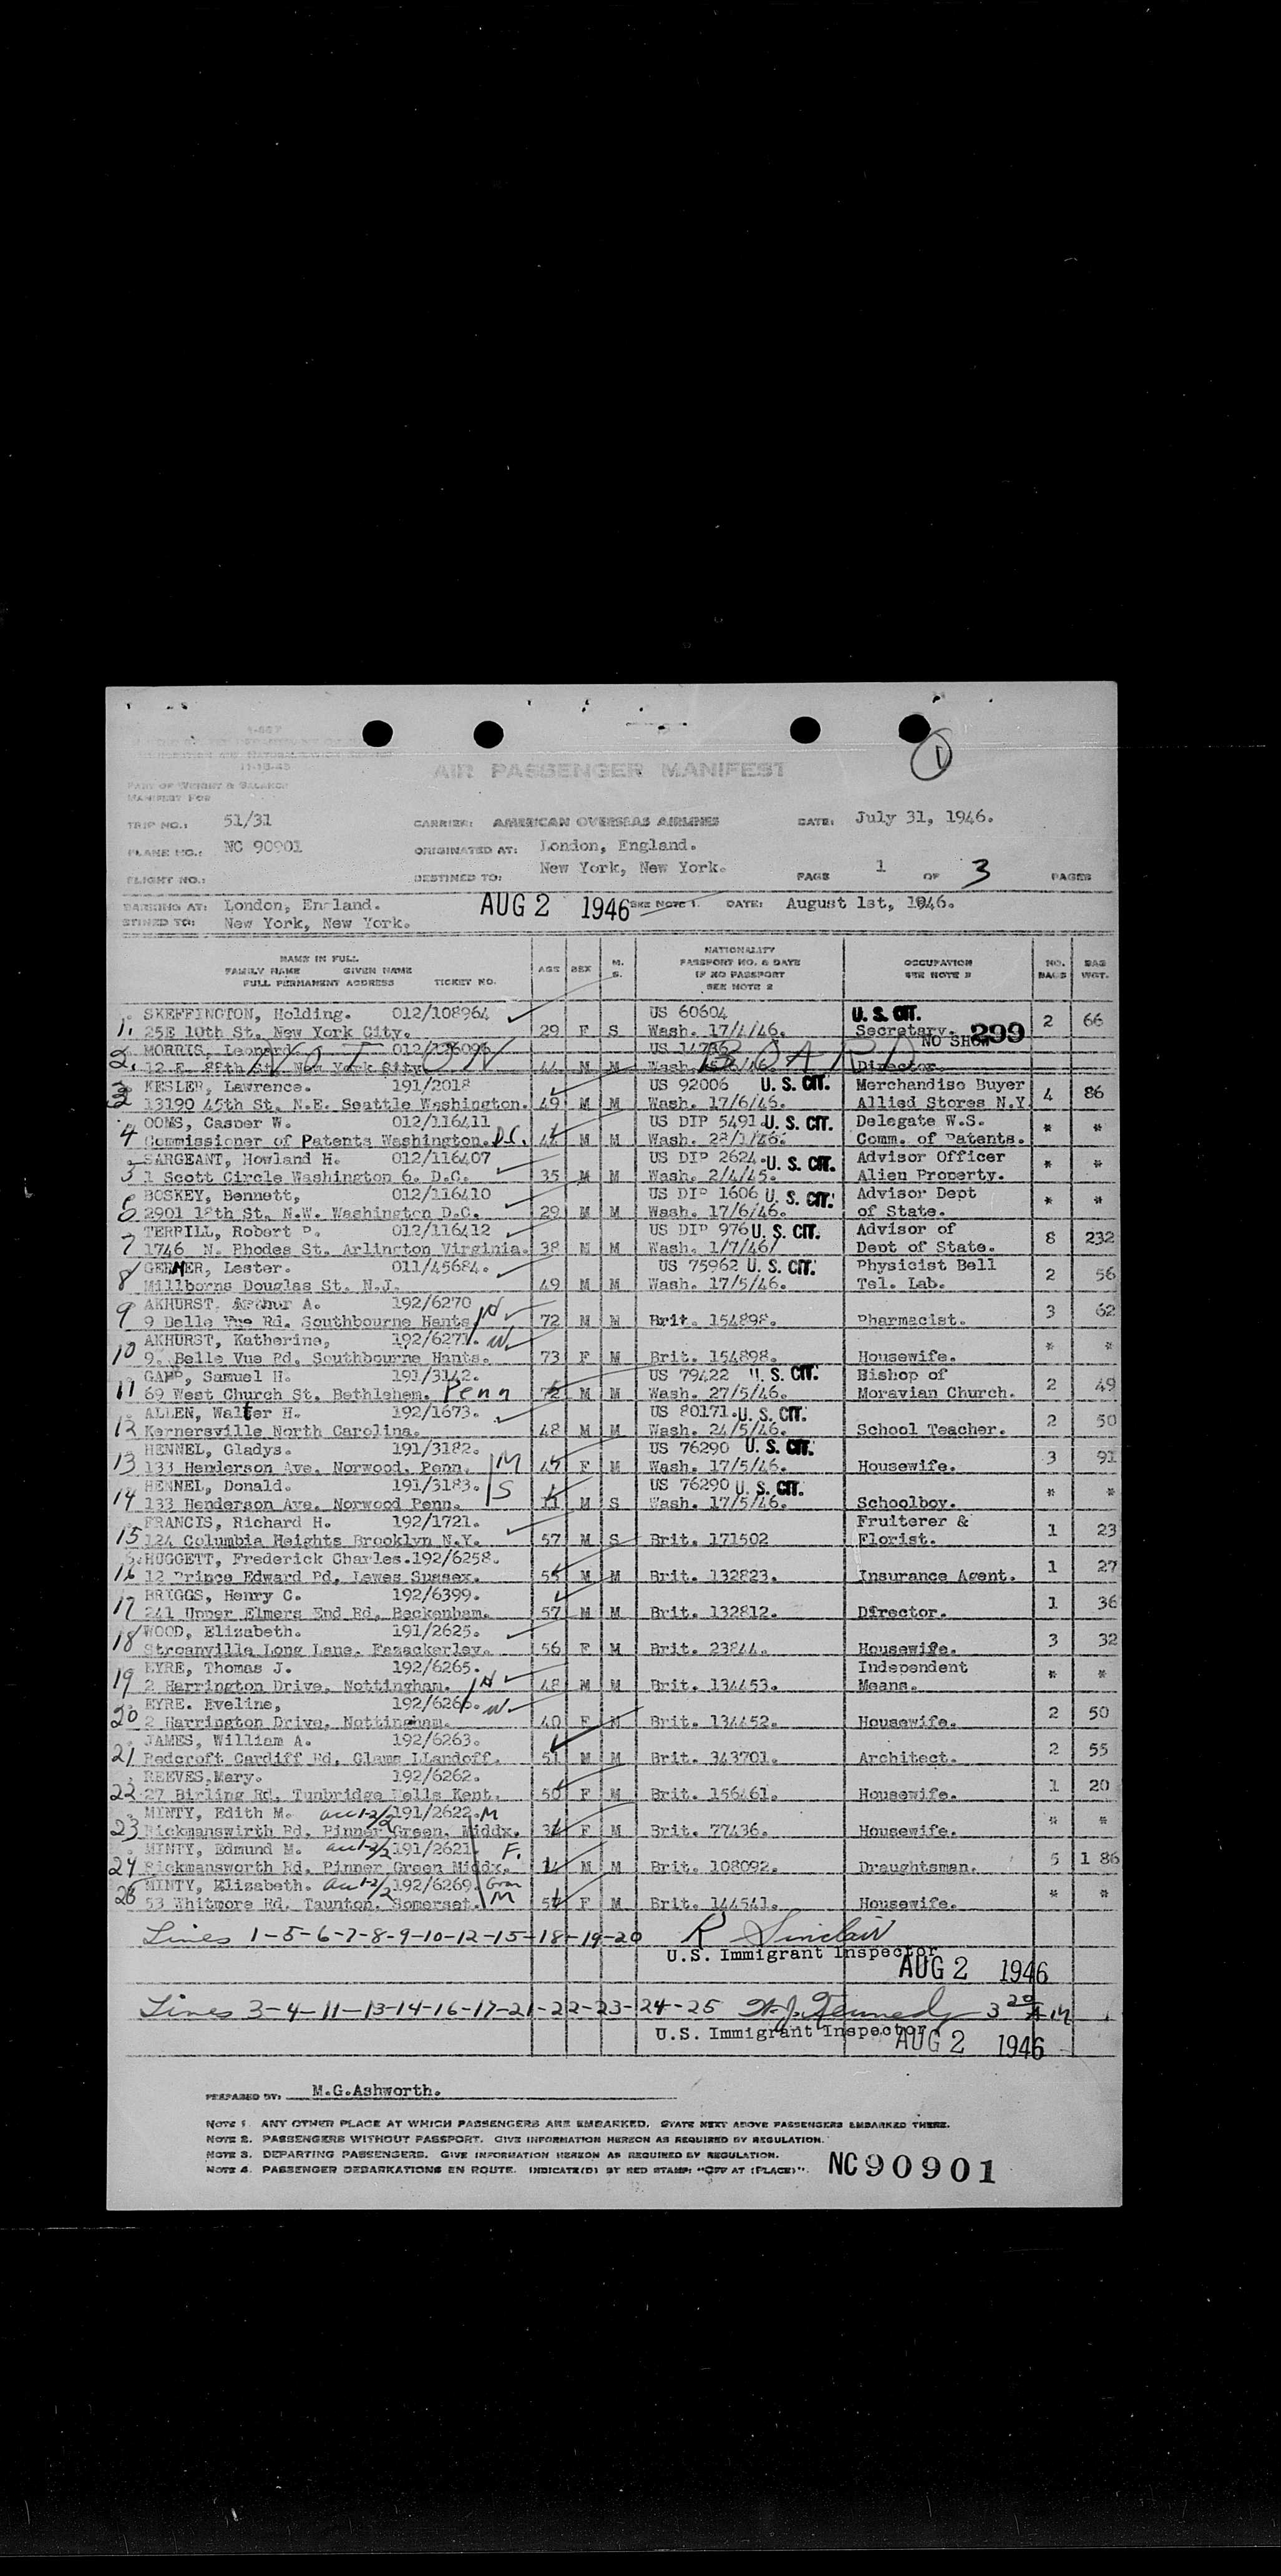 1
11-15-45
AIR PASSENGER MANIFEST
PART OF WEIGHT & BALANCE
MANIFEST FOR
TRIP NO.: 51/31 CARRIER: AMERICAN OVERSEAS AIRLINES DATE: July 31, 1946.
PLANE NO.: NC 90901 ORIGINATED AT: London, England.
FLIGHT NO.: DESTINED TO: New York, New York. PAGE 1 OF 3 PAGES
BARKING AT: London, England. AUG 2 1946 SEE NOTE 1. DATE: August 1st, 1946.
STINED TO: New York, New York.
NAME IN FULL
FAMILY NAME GIVEN NAME
FULL PERMANENT ADDRESS TICKET NO. AGE SEX M. S. NATIONALITY PASSPORT NO. & DATE IF NO PASSPORT SEE NOTE 2 OCCUPATION SEE NOTE 3 NO. BAGS BAG WGT.
SKEFFINGTON, Holding. 012/108964 US 60604 U. S. CIT.
1. 25E 10th St, New York City. 29 F S Wash. 17/4/46. Secretary. 299 2 66
MORRIS, Leonard. 012/126096 US 14786 NO SHOW
2. 12 E. 88th St. New York City 44 M M Wash. Director.
NOT ON BOARD
KESLER, Lawrence. 191/2018 US 92006 U. S. CIT. Merchandise Buyer
3 13190 45th St. N.E. Seattle Washington. 49 M M Wash. 17/6/46. Allied Stores N.Y. 4 86
OOMS, Casper W. 012/116411 US DIP 5491. U. S. CIT. Delegate W.S.
4 Commissioner of Patents Washington. D.C. M M Wash. 28/1/46. Comm. of Patents. * *
SARGEANT, Howland H. 012/116407 US DIP 2624. U. S. CIT. Advisor Officer
5 1 Scott Circle Washington 6. D.C. 35 M M Wash. 2/4/45. Alien Property. * *
BOSKEY, Bennett, 012/116410 US DIP 1606 U. S. CIT. Advisor Dept
6 2901 18th St. N.W. Washington D.C. 29 M M Wash. 17/6/46. of State. * *
TERRILL, Robert P. 012/116412 US DIP 976 U. S. CIT. Advisor of
7 1746 N. Rhodes St. Arlington Virginia. 38 M M Wash. 1/7/46/ Dept of State. 8 232
GERMER, Lester. 011/45684. US 75962 U. S. CIT. Physicist Bell
8 Millborns Douglas St. N.J. 49 M M Wash. 17/5/46. Tel. Lab. 2 56
AKHURST, Arthur A. 192/6270
9 9 Belle Vue Rd. Southbourne Hants H 72 M M Brit. 154898. Pharmacist. 3 62
AKHURST, Katherine, 192/6271. W
10 9. Belle Vue Rd. Southbourne Hants. 73 F M Brit. 154898. Housewife. * *
GAPP, Samuel H. 191/3142. US 79422 U. S. CIT. Bishop of
11 69 West Church St. Bethlehem. Penn 72 M M Wash. 27/5/46. Moravian Church. 2 49
ALLEN, Walter H. 192/1673. US 80171. U. S. CIT.
12 Kernersville North Carolina. 48 M M Wash. 24/5/46. School Teacher. 2 50
HENNEL, Gladys. 191/3182. US 76290 U. S. CIT.
13 133 Henderson Ave. Norwood. Penn. M 47 F M Wash. 17/5/46. Housewife. 3 91
HENNEL, Donald. 191/3183. US 76290 U. S. CIT.
14 133 Henderson Ave. Norwood Penn. S 11 M S Wash. 17/5/46. Schoolboy. * *
FRANCIS, Richard H. 192/1721. Fruiterer &
15 124 Columbia Heights Brooklyn N.Y. 57 M S Brit. 171502 Florist. 1 23
HUGGETT, Frederick Charles. 192/6258.
16 12 Prince Edward Rd, Lewes Sussex. 55 M M Brit. 132823. Insurance Agent. 1 27
BRIGGS, Henry C. 192/6399.
17 241 Upper Elmers End Rd, Beckenham. 57 M M Brit. 132812. Director. 1 36
WOOD, Elizabeth. 191/2625.
18 Stroanville Long Lane. Fazackerley. 56 F M Brit. 23844. Housewife. 3 32
EYRE, Thomas J. 192/6265. Independent
19 2 Harrington Drive, Nottingham. H 48 M M Brit. 134453. Means. * *
EYRE. Eveline, 192/6266. W
20 2 Harrington Drive, Nottingham. 40 F M Brit. 134452. Housewife. 2 50
JAMES, William A. 192/6263.
21 Redcroft Cardiff Rd, Glams LLandoff. 51 M M Brit. 343701. Architect. 2 55
REEVES, Mary. 192/6262.
22 27 Birling Rd, Tunbridge Wells Kent. 50 F M Brit. 156461. Housewife. 1 20
MINTY, Edith M. 191/2622. M
23 Rickmanswirth Rd. Pinner Green. Middx. F M Brit. 77436. Housewife. * *
MINTY, Edmund M. 191/2621. F.
24 Rickmansworth Rd. Pinner Green Middx. M M Brit. 108092. Draughtsman. 5 186
MINTY, Elizabeth. 192/6269. Gran
25 53 Whitmore Rd. Taunton, Somerset. M F M Brit. 144541. Housewife. * *
Lines 1-5-6-7-8-9-10-12-15-18-19-20 R Sinclair
U.S. Immigrant Inspector
AUG 2 1946
Lines 3-4-11-13-14-16-17-21-22-23-24-25 W. J. Kennedy 3 20 AM
U.S. Immigrant Inspector
AUG 2 1946
PREPARED BY: M.G.Ashworth.
NOTE 1. ANY OTHER PLACE AT WHICH PASSENGERS ARE EMBARKED. STATE NEXT ABOVE PASSENGERS EMBARKED THERE.
NOTE 2. PASSENGERS WITHOUT PASSPORT. GIVE INFORMATION HEREON AS REQUIRED BY REGULATION.
NOTE 3. DEPARTING PASSENGERS. GIVE INFORMATION HEREON AS REQUIRED BY REGULATION.
NOTE 4. PASSENGER DEBARKATIONS EN ROUTE. INDICATE(D) BY RED STAMP: "OFF AT (PLACE)".
NC90901